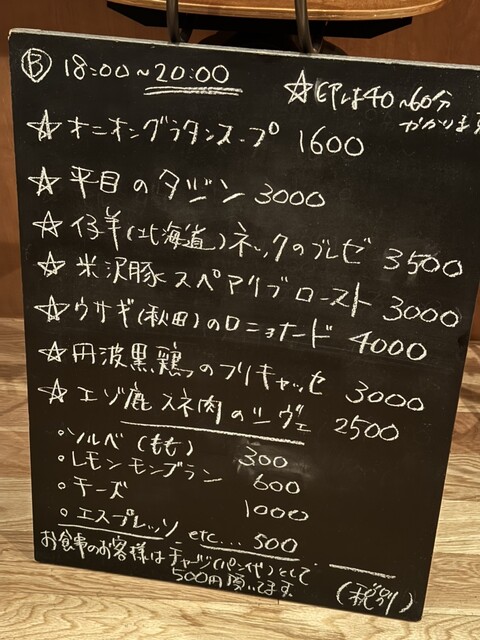 Ⓑ 18:00~20:00
☆印は40~60分
かかります
☆ オニオングラタンスープ 1600
☆ 平目のタジン 3000
☆ 仔羊(北海道)ネックのブレゼ 3500
☆ 米沢豚スペアリブロースト 3000
☆ ウサギ(秋田)のロニョナード 4000
☆ 丹波黒鶏のフリキャッセ 3000
☆ エゾ鹿スネ肉のシヴェ 2500
○ソルベ(もも) 300
○レモンモンブラン 600
○チーズ 1000
○エスプレッソ etc... 500
お食事のお客様はチャージ(パン代)として
500円頂いてます
(税別)